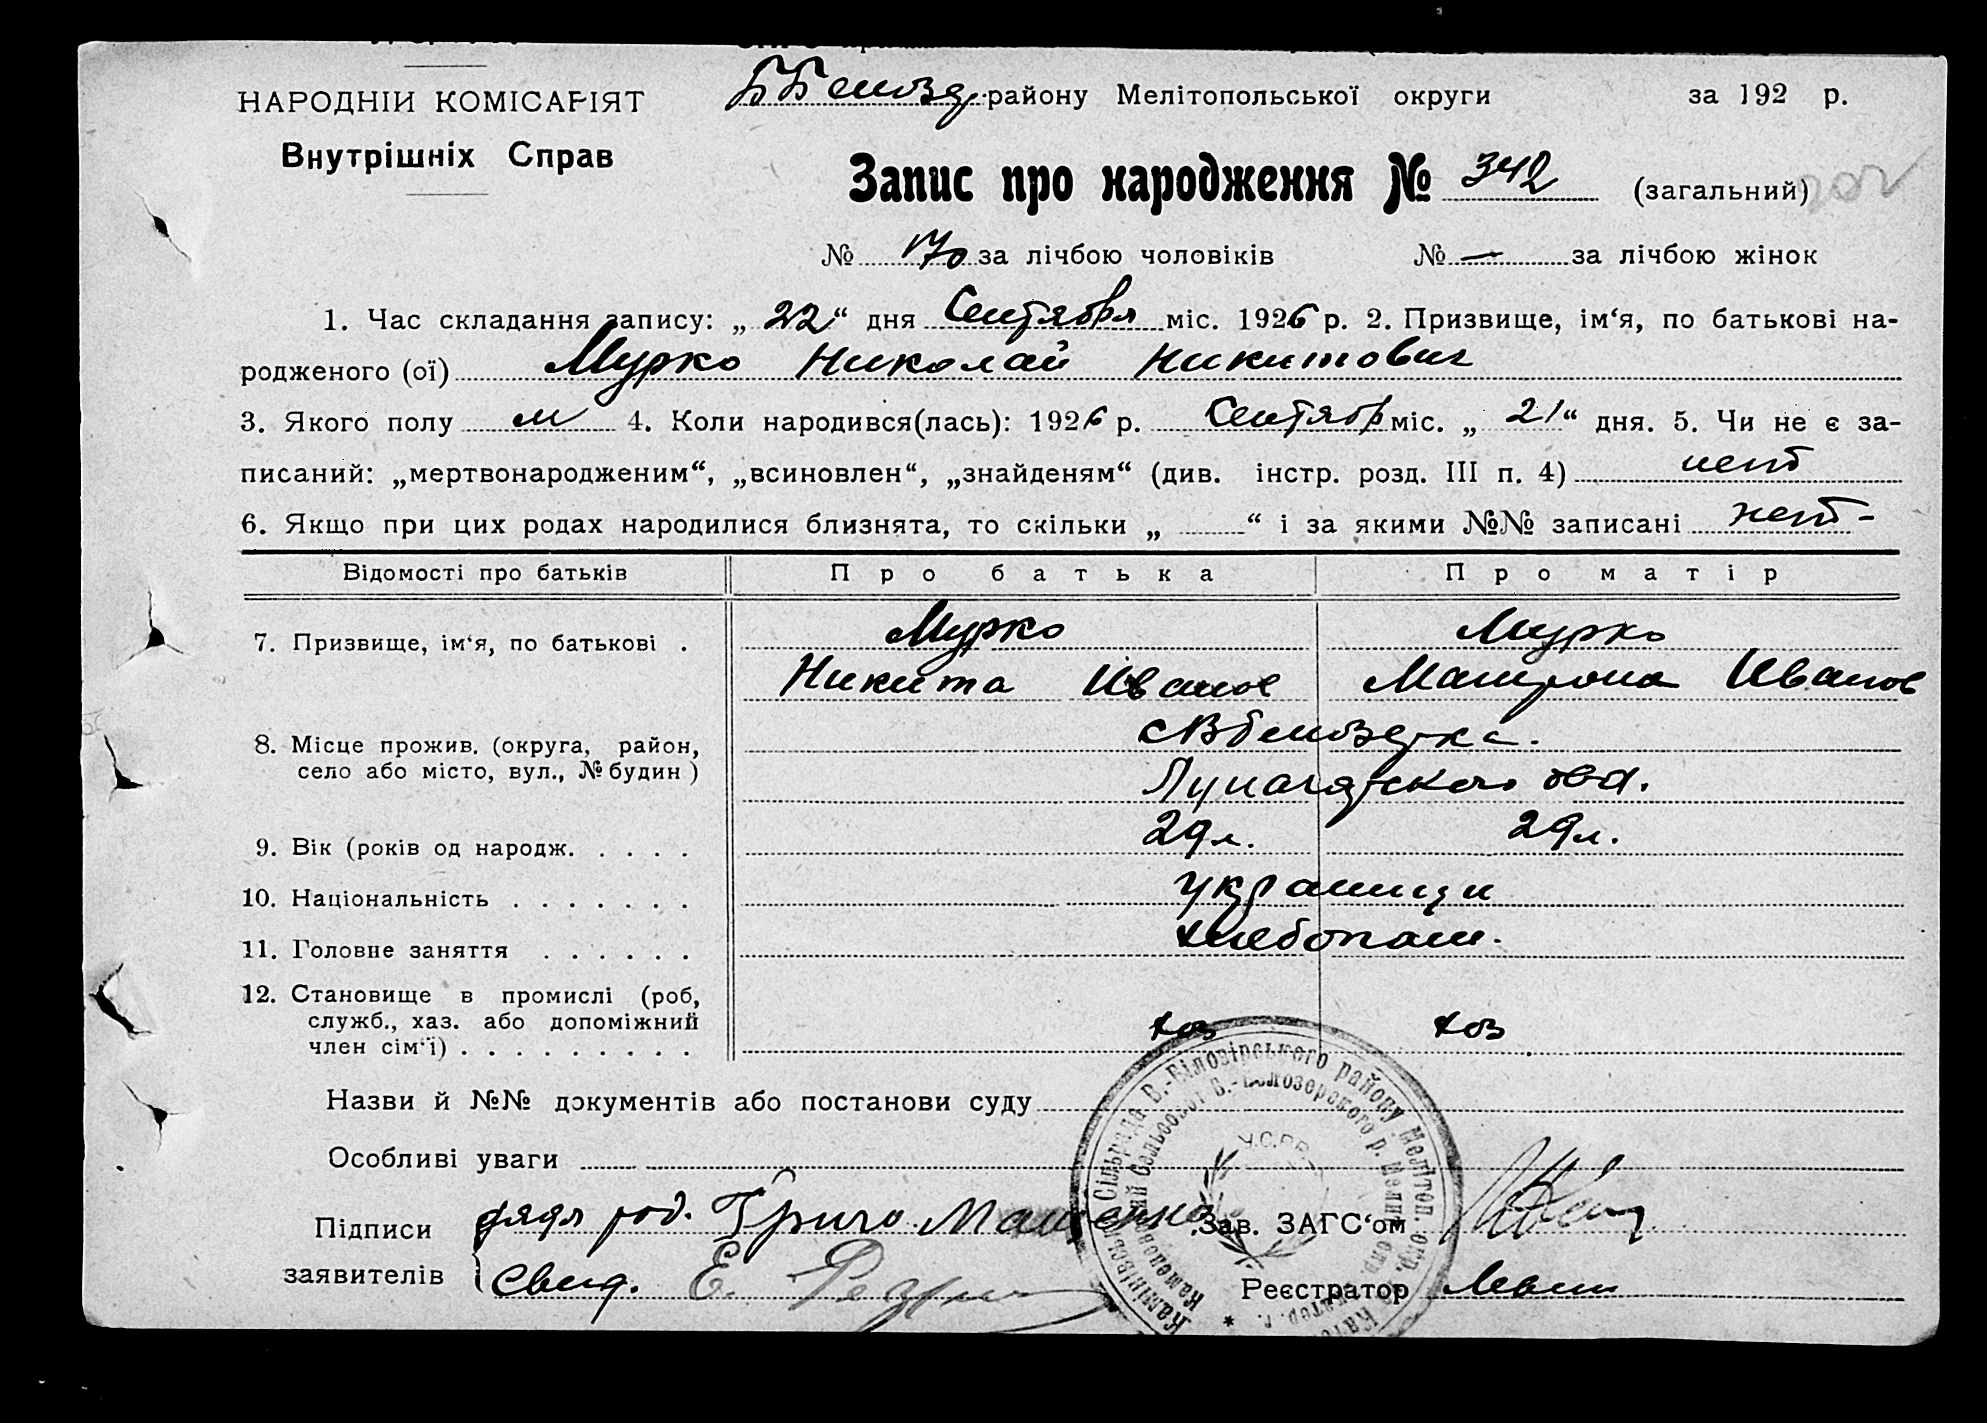 НАРОДНІЙ КОМІСАРІЯТ
Внутрішніх Справ
району Мелітопольської округи за 192 р.
Запис про народження № 342 (загальний)
№ 170 за лічбою чоловіків № — за лічбою жінок
1. Час складання запису: „ 22 “ дня Сентября міс. 1926 р. 2. Призвище, ім‘я, по батькові на-
родженого (ої) Мурко Николай Никитович
3. Якого полу м 4. Коли народився(лась): 1926 р. Сентябр міс. „ 21 “ дня. 5. Чи не є за-
писаний: „мертвонародженим“, „всиновлен“, „знайденям“ (див. інстр. розд. III п. 4) нет
6. Якщо при цих родах народилися близнята, то скільки „ “ і за якими №№ записані нет -
Відомості про батьків Про батька Про матір
7. Призвище, ім‘я, по батькові . Мурко Мурко
Никита Иванов Матрона Иванов
8. Місце прожив. (округа, район,
село або місто, вул., № будин )
9. Вік (років од народж. . . . . 29 л. 29 л.
10. Національність . . . . . . . украинци
11. Головне заняття . . . . . . хлебопаш.
12. Становище в промислі (роб,
служб., хаз. або допоміжний
член сім‘ї) . . . . . . . . . хоз хоз
Назви й №№ документів або постанови суду
Особливі уваги
Підписи дядя род. Зав. ЗАГС‘ом
заявителів свид. Е. Реєстратор
Сільрада В.-Білозірського району Мелітоп. окр.
Сельсовет В.-Белозерского р.
У.С.Р.Р.